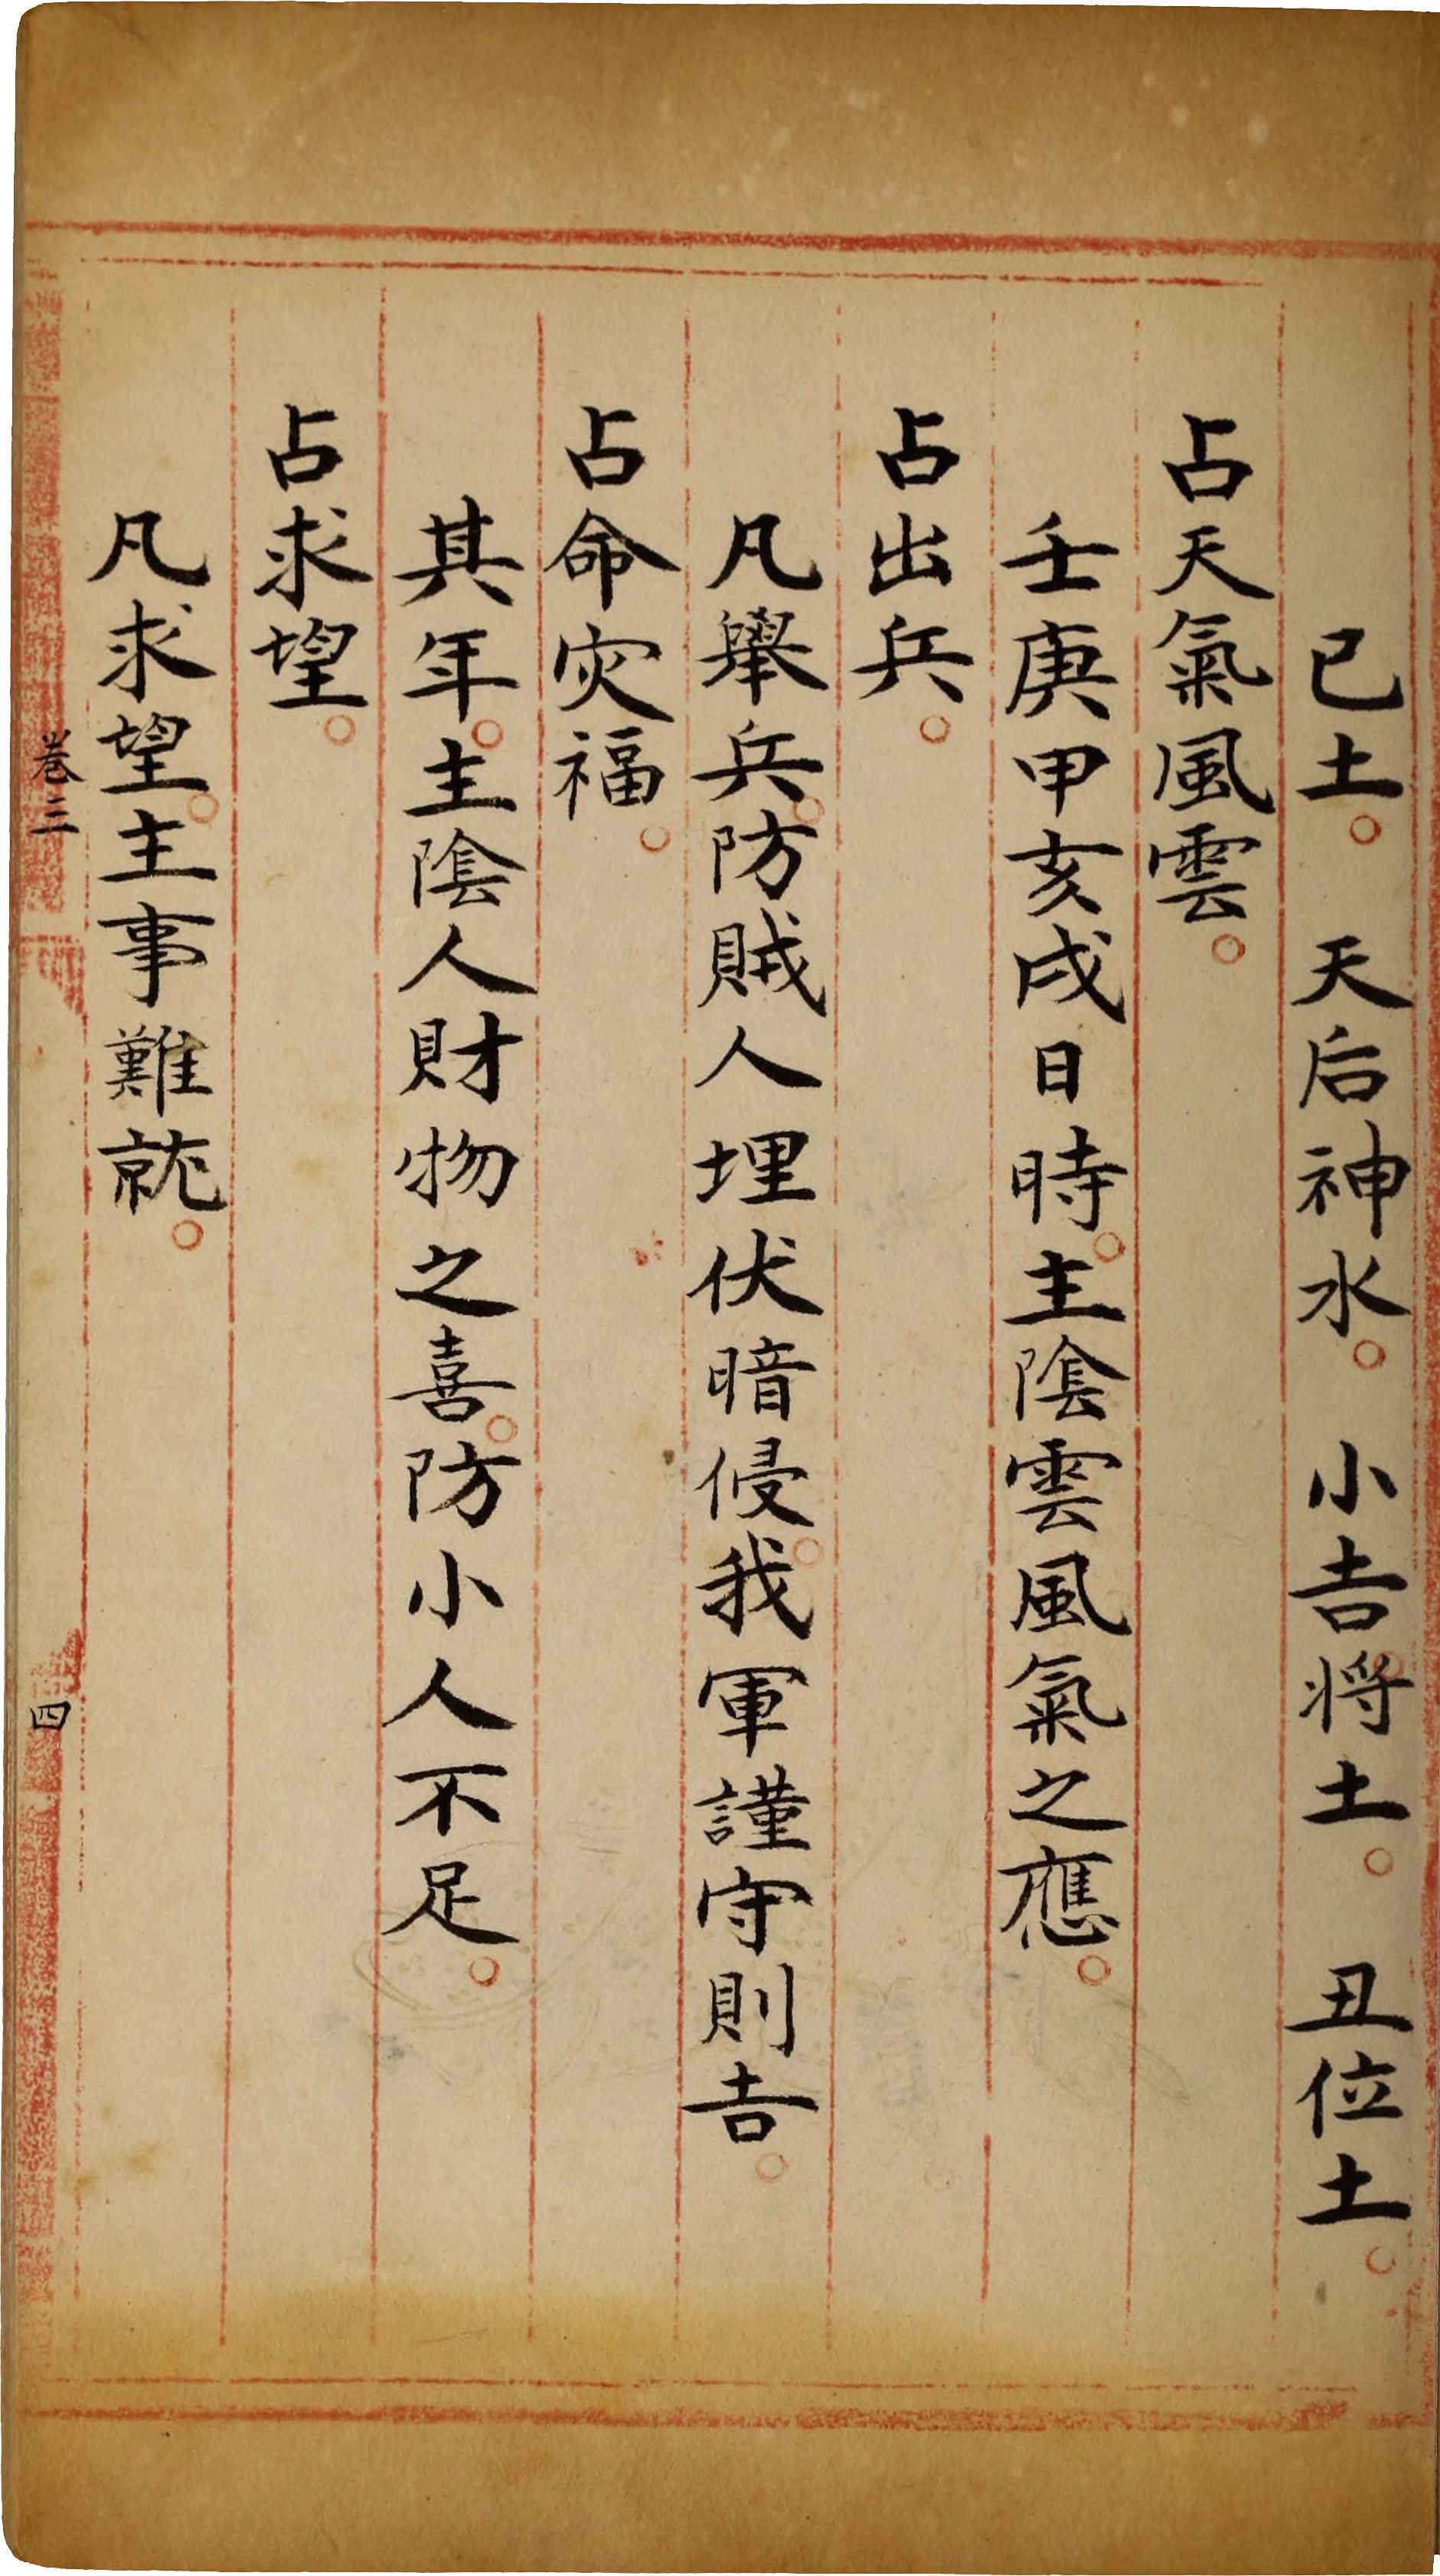 已土。　天后神水。　小吉将土。　丑位土。
占天氣風雲。
壬庚甲亥戌日時。主陰雲風氣之應。
占出兵。
凡舉兵。防賊人埋伏暗侵。我軍謹守則吉。
占命灾福。
其年。主陰人財物之喜。防小人不足。
占求望。
凡求望。主事難就。
卷三
四